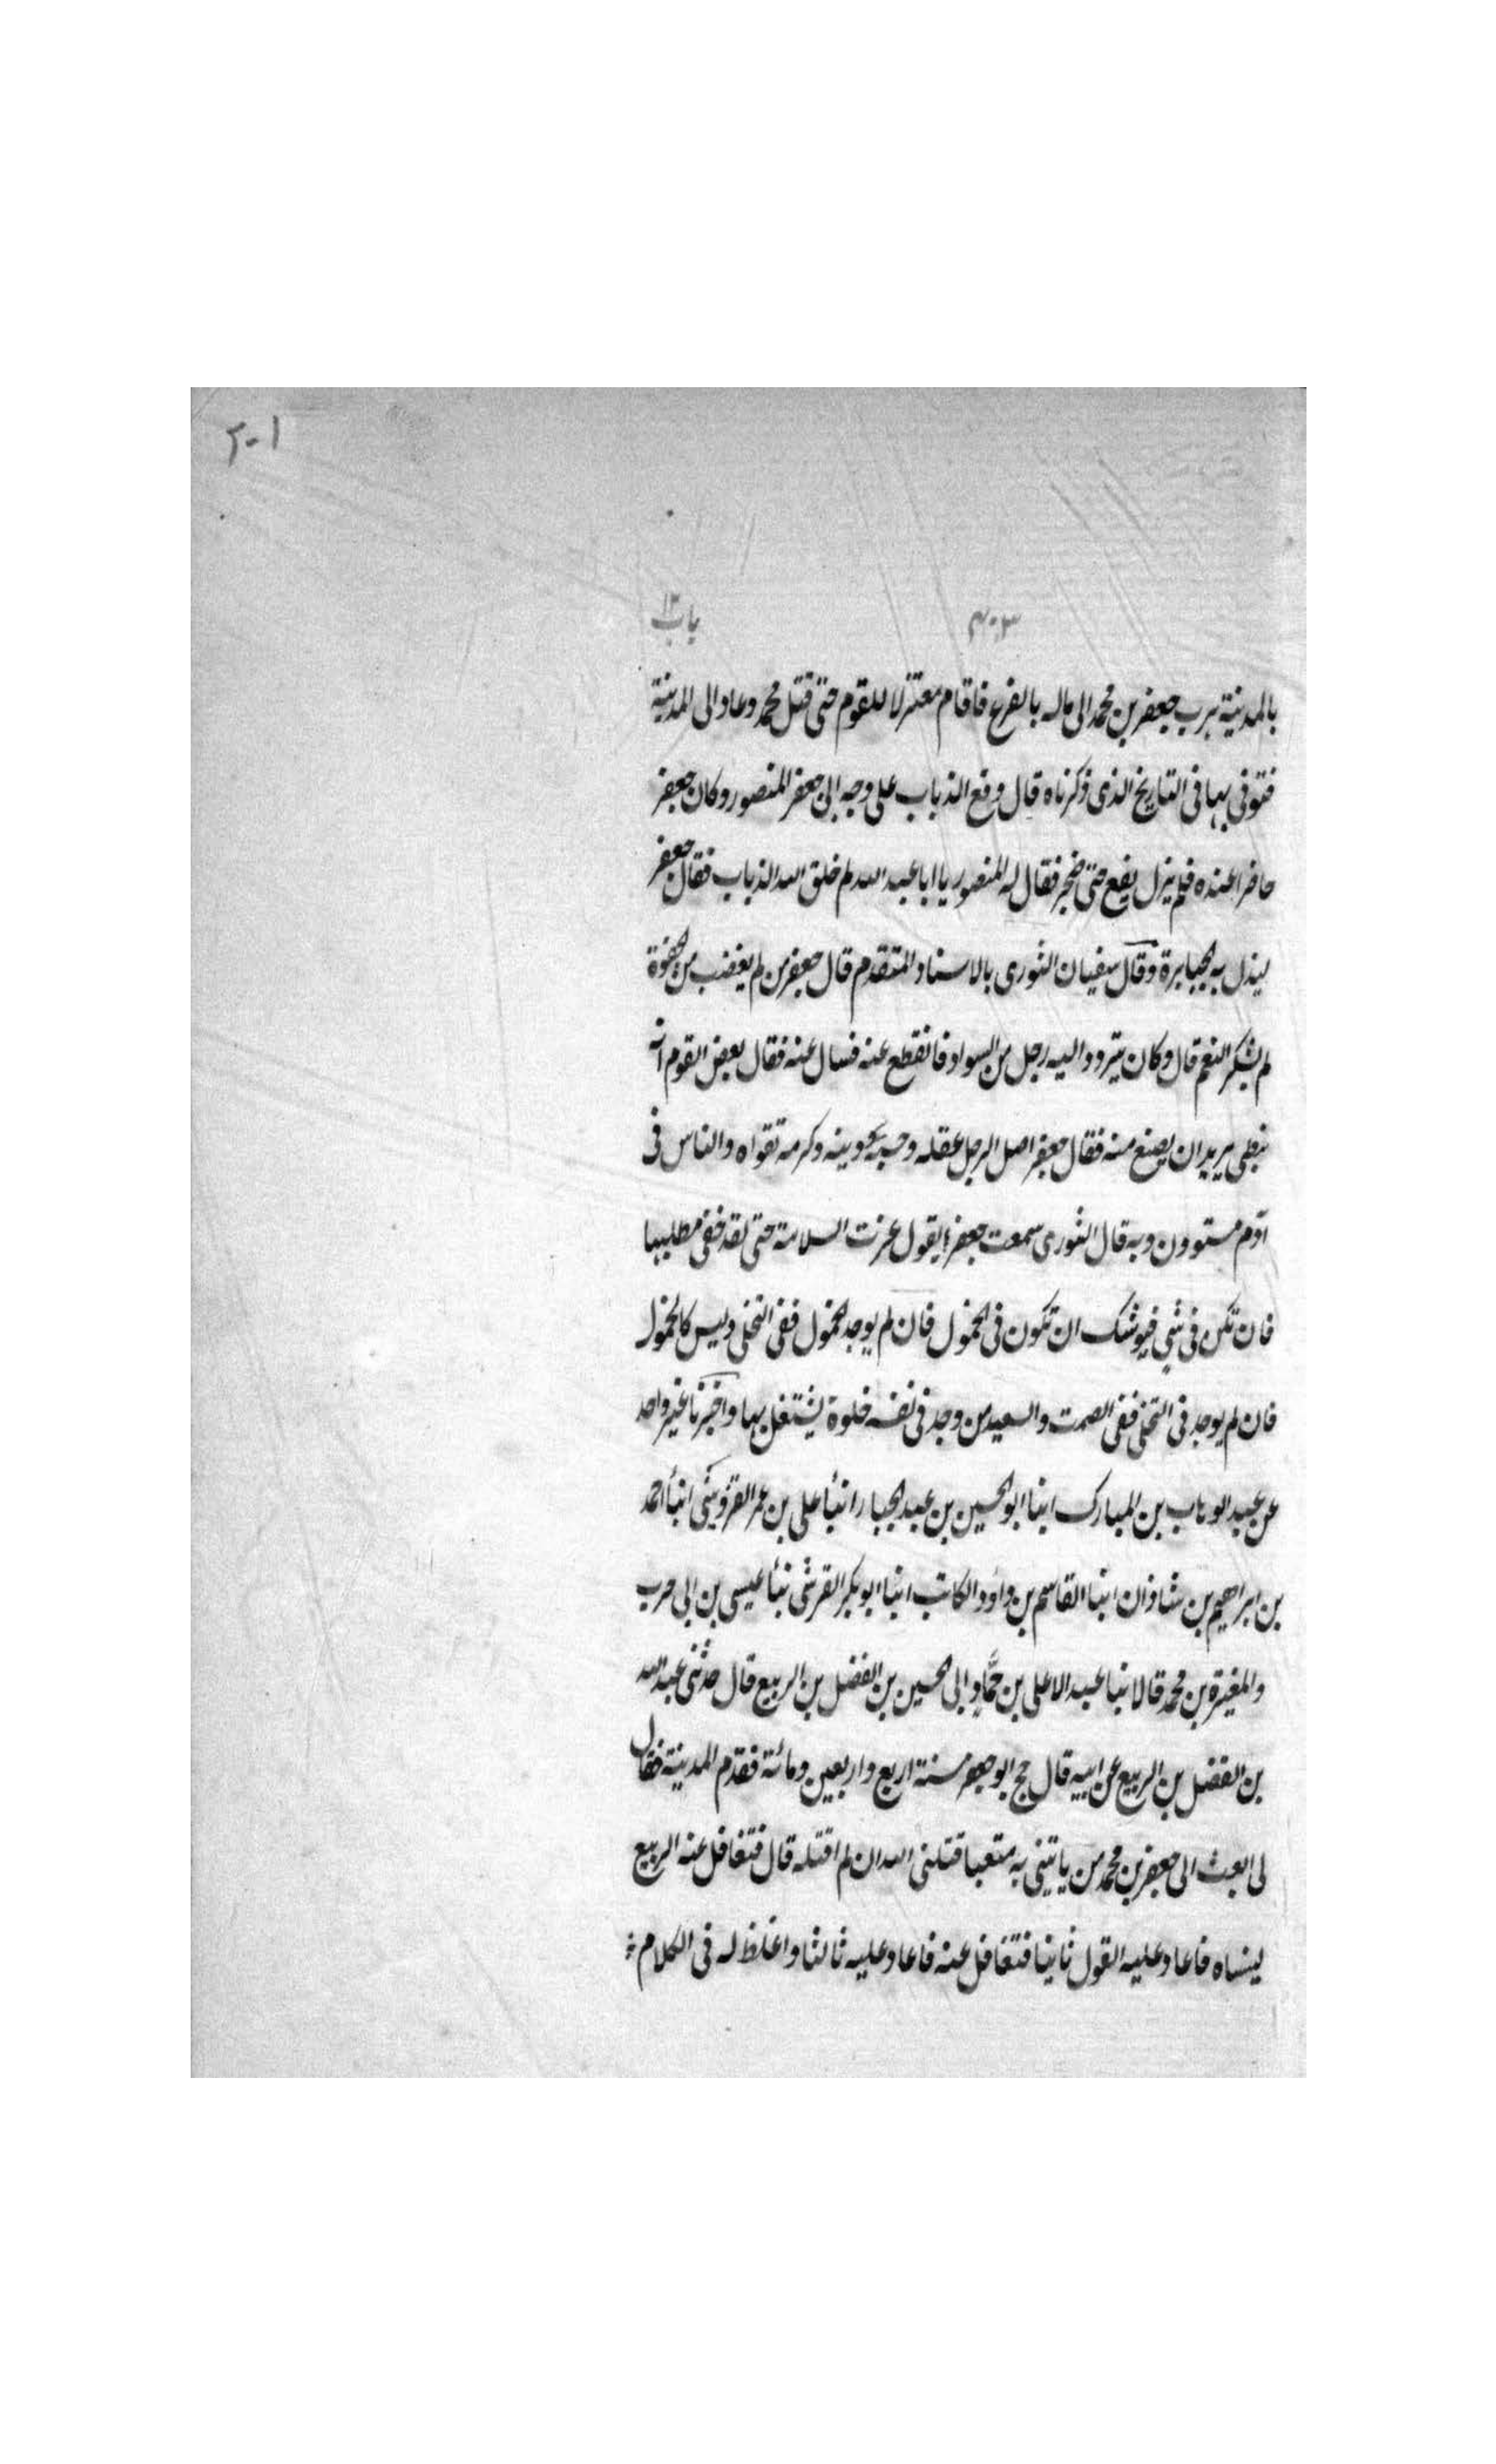 ٢٠١
٤٠٣ باب ١٢
بالمدينة هرب جعفر بن محمد الى ماله بالفرع فاقام معتزلا للقوم حتى قتل محمد وعاد الى المدينة
فتوفى بها فى التاريخ الذى ذكرناه قال وقع الذباب على وجه ابى جعفر المنصور وكان جعفر
حاضرا عنده فلم يزل يقع حتى ضجر فقال له المنصور يا ابا عبد الله لم خلق الله الذباب فقال جعفر
ليذل به الجبابرة وقال سفيان الثورى بالاسناد المتقدم قال جعفر من لم يغضب من الجفوة
لم يشكر النعم قال وكان يتردد اليه رجل من السواد فانقطع عنه فسال عنه فقال بعض القوم انه
نبطى يريد ان يصنع منه فقال جعفر اصل الرجل عقله وحسبه دينه وكرمه تقواه والناس فى
آدم مستوون وبه قال الثورى سمعت جعفرا يقول عزت السلامة حتى لقد خفى مطلبها
فان تكن فى شىء فيوشك ان تكون فى الخمول فان لم يوجد الخمول ففى التخلى وليس كالخمول
فان لم يوجد فى التخلى ففى الصمت والسعيد من وجد فى نفسه خلوة يشتغل بها واخبرنا غير واحد
عن عبد الوهاب بن المبارك انبا ابو الحسين بن عبد الجبار انبأ على بن عمر القزوينى انبأ احمد
بن ابراهيم بن شاذان انبا القاسم بن داؤد الكاتب انبا ابو بكر القرشى نبأ عيسى بن ابى حرب
والمغيرة بن محمد قالا نبا عبد الاعلى بن حمّاد ابى الحسين بن الفضل بن الربيع قال حدثنى عبد الله
بن الفضل بن الربيع عن ابيه قال حج ابو جعفر سنة اربع واربعين ومائة فقدم المدينة فقال
لى ابعث الى جعفر بن محمد من ياتينى به متعبا قتلنى الله ان لم اقتله قال فتغافل عنه الربيع
لينساه فاعاد عليه القول ثانيا فتغافل عنه فاعاد عليه ثالثا واغلظ له فى الكلام